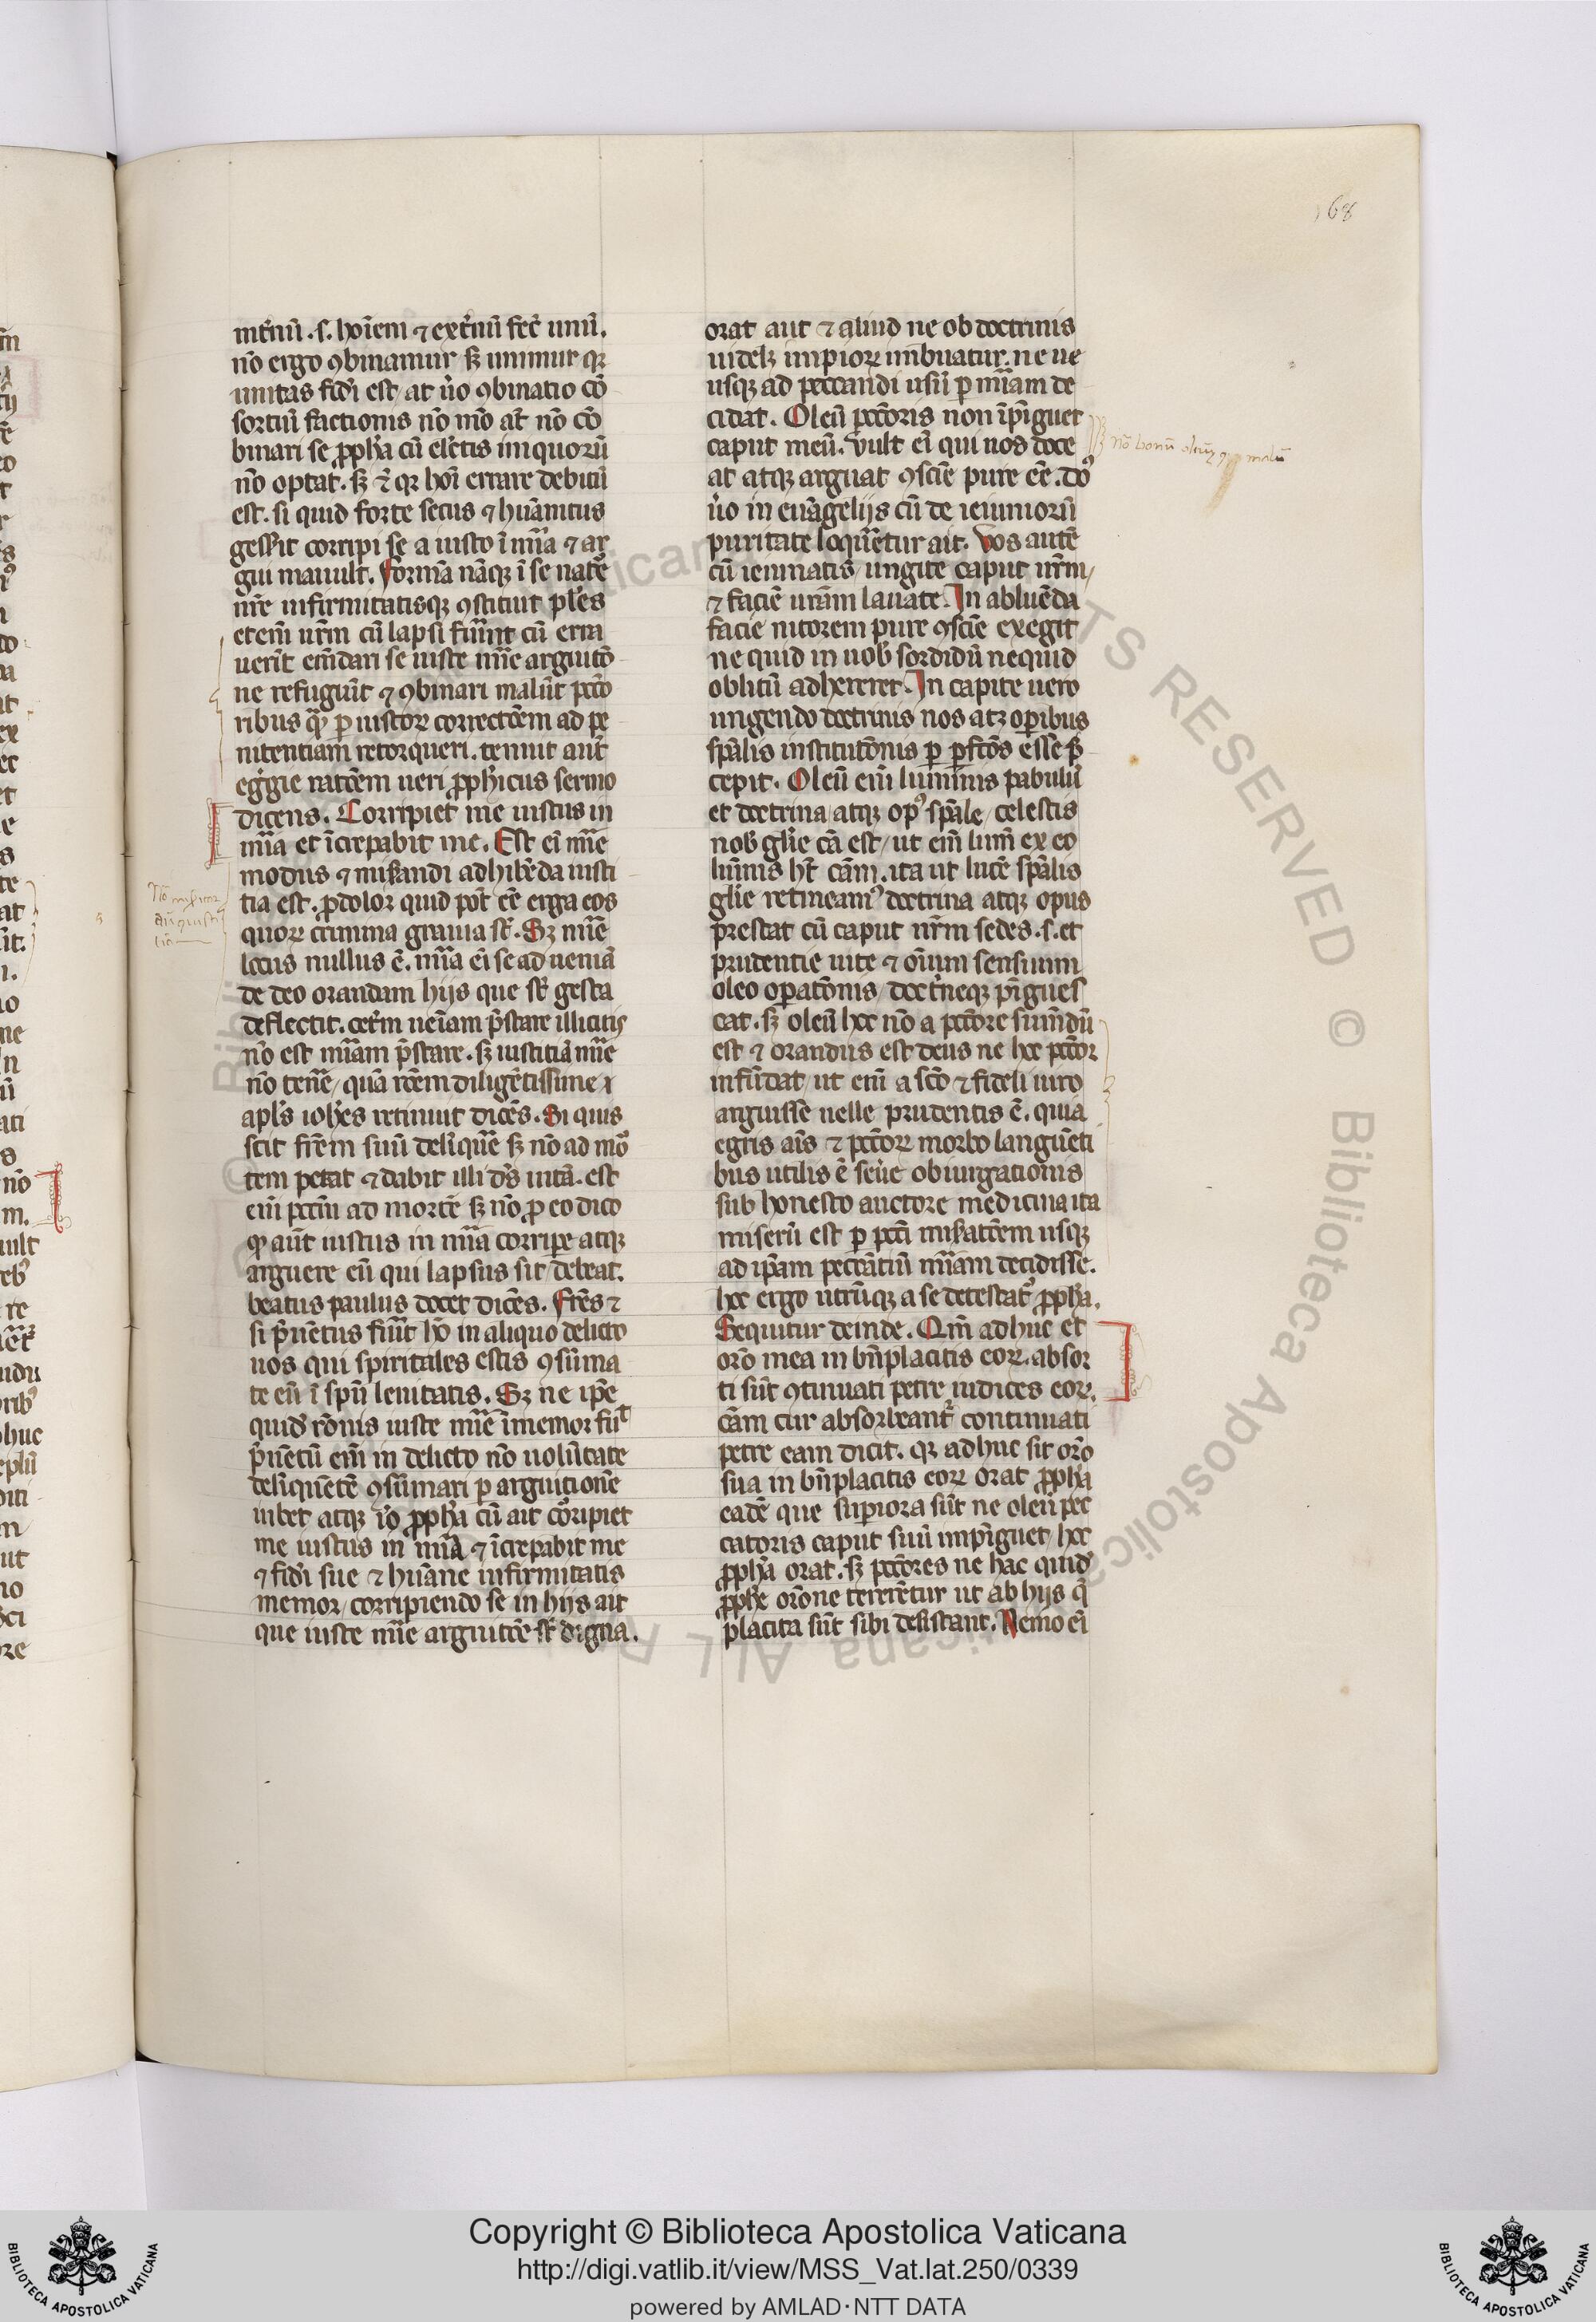 168
mt̾nū .s. hoīem ⁊ ext̾nū fec̾ unū.
nō ergo ꝯbinamur sꝫ unimur qꝛ
unitas fidi est at u̾o ꝯbinatio cō
sortiū factionis nō mō at̾ nō cō
binari se ꝓpha cū elētis iniquorū
nō optat. sꝫ ⁊̄ qꝛ hoī errare debitū
est. si quid forte secus ⁊ huānitus
gess̾it corripi se a iusto ī mīa ⁊ ar
gui mauult. Formā nāqꝫ ī se nat̾e
nr̄e infirmitatisqꝫ ꝯstituit pl̾es
etenī urm̄ cū lapsi fuīnt cū erra
uerīt emdari se iuste mīe arguitō
ne refugiūt ⁊ ꝯbinari malūt pcc̄o
ribus qͣꝫ ꝑ iustoꝝ correctōem ad pe
nitentiam retorqueri. tenuit aut̄
egḡie rat̄oem ueri ꝓph̾icus sermo
dicens. Corripiet me iustus in
mīa et īcrepabit me. Est ei mīe
modus ⁊ mis̾andi adhibēda iusti
tia est. ꝓdoloꝛ quid pōt ēe erga eos
quoꝝ crimina grauia st̄. Sꝫ mīe
locus nullus ē. mīa ei se ad ueniā
de deo orandam hijs que st̄ gesta
deflectit. cet̾m ueīam p̄stare illicitis
nō est mīam p̄stare. sꝫ iustitiā mīe
nō tenē quā rōem diligētissime ⁊
apl̄s ioh̾es retinuit dicēs. Si quis
scit frēm suū deliquē sꝫ nō ad mo᷒
tem petat ⁊ dabit illi dn̄s uitā. est
enī pccm̄ ad mortē sꝫ nō ꝓ eo dico
ꝙ aut̄ iustus in mīa corripe atqꝫ
arguere eū qui lapsus sit debeat.
beatus paulus docet dicēs. Frēs ⁊
si p̄uētus fuīt hō in aliquo delicto
uos qui spiritales estis ꝯsūma
te eū ī spū lenitatis. Sꝫ ne ip̄e
quidē rōnis iuste mīe īmemor fuit
p̄uētū enī in delicto nō uolūtate
deliquētē ꝯsūmari ꝑ arguitionē
iubet atqꝫ iō ꝓph̾a cū ait corripiet
me iustus in mīa ⁊ īcrepabit me
⁊ fidi sue ⁊ huāne infirmitatis
memor corripiendo se in hijs ait
que iuste mīe arguitōe st̄ digna.
Nō misericor
aiūqiusti
tia
orat aut ⁊ aliud ne ob doctrinis
uidelꝫ impioꝝ imbuatur. ne ue
usqꝫ ad peccandi usū ꝑ mīam de
cidat. Oleū pcc̄oris non īpīguet
caput meū. Vult ei qui nos doce
at atqꝫ arguat ꝯsciē pure ēe. do᷒
u̾o in euāgelijs cū de ieiuniorū
puritate loqūetur ait. Vos autē
cū ieiunatis ungite caput urm̄
⁊ faciē urām lauate. In abluēda
facie nitorem pure ꝯsciē exegit
ne quid in uob sordidū nequid
oblitū adhereret. In capite uero
ungendo doctrinis nos atꝫ oꝑibus
spālis institutōnis ꝑ ꝑfctōs esse p̄
cepit. Oleū enī luminis pabulū
et doctrina atqꝫ op᷒ spāle celestis
nob gl̾ie cā est ut enī lum̄ ex eo
lum̄nis ht̄ cām. ita ut lucē spālis
gl̾ie retineam᷒ doctrina atqꝫ opus
prestat cū caput nr̄m sedes .s. et
prudentie uite ⁊ oīum sensuum
oleo oꝑatōnis doct̾neqꝫ pīgues
cat. sꝫ oleū hec nō a pcc̄ore sum̄dū
est ⁊ orandus est deus ne hec pcc̄oꝛ
infūdat ut enī a sc̄o ⁊ fideli uiro
arguisse uelle prudentis ē. quia
egris aīs ⁊ pcc̄oꝝ morbo languēti
bus utilis ē seue̾ obiurgationis
sub honesto auctore medicina ita
miserū est ꝑ pcc̄i mis̾atōem usqꝫ
ad ip̄am peccātiū mīam decidisse.
hec ergo utrūqꝫ a se detestat᷒ ꝓph̾a.
Sequitur deinde. Qm̄ adhuc et
orō mea in bn̄placitis eoꝝ. absor
ti sūt ꝯtinuati petre iudices eoꝝ.
cām cur absorbeant᷑ continuati
petre eam dicit. qꝛ adhuc sit orō
sua in bn̄placitis eoꝝ orat ꝓph̾a
eadē que suꝑiora sūt ne oleū pec
catoris caput suū impīguet hec
ꝓph̾a orat. sꝫ pcc̄ores ne hac quidē
ꝓphe orōne tererētur ut ab hijs q̄
placita sūt sibi desistant. Nemo ei
nō bonū oleūꝫ qꝫ malū
Copyright © Biblioteca Apostolica Vaticana
http://digi.vatlib.it/view/MSS_Vat.lat.250/0339
powered by AMLAD·NTT DATA
BIBLIOTECA APOSTOLICA VATICANA
BIBLIOTECA APOSTOLICA VATICANA